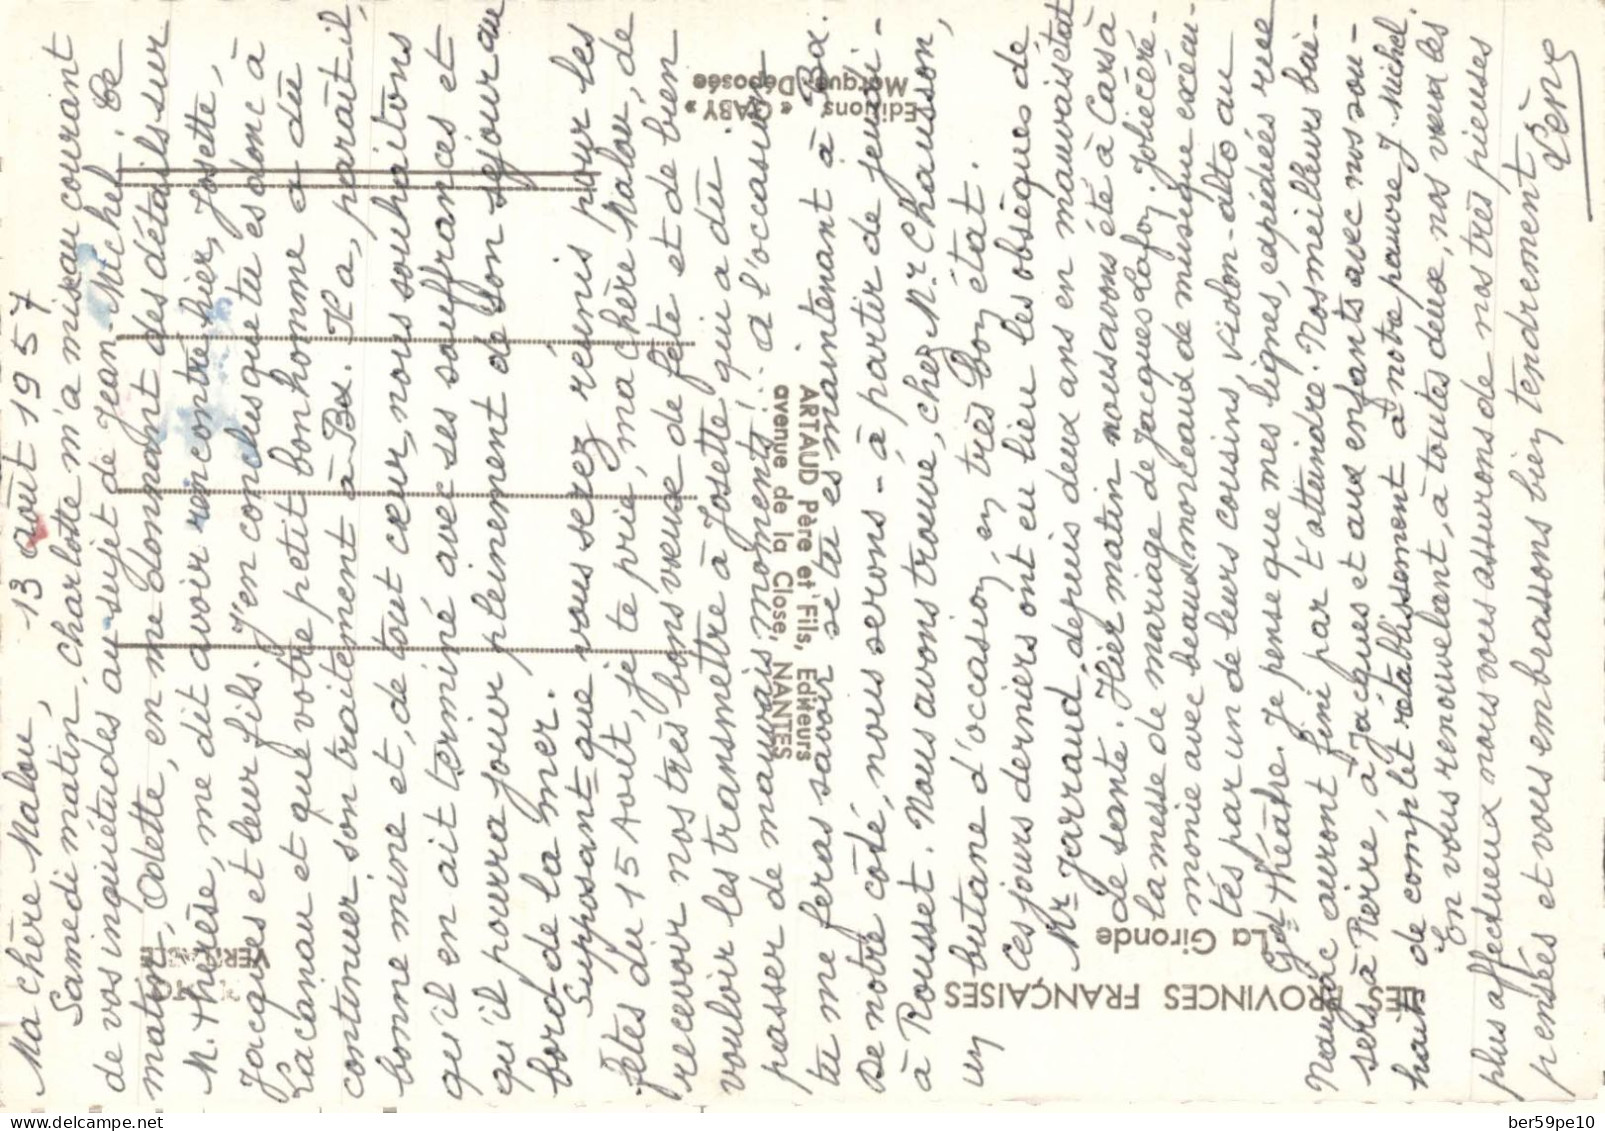 13 Août 1957
Ma chère Malou,
Samedi matin, Charlotte m'a mise au courant
de vos inquiétudes au sujet de Jean-Michel. Ce
matin, Odette, en me donnant des détails sur
M. Thérèse, me dit avoir rencontré hier, Josette,
Jacques et leur fils. J'en conclus que tu es donc à
Lacanau et que votre petit bonhomme a dû
continuer son traitement à Bx. Il a, paraît-il,
bonne mine et, de tout cœur, nous souhaitons
qu'il en ait terminé avec ses souffrances et
qu'il pourra jouir pleinement de son séjour au
bord de la mer.
Supposant que vous serez réunis pour les
fêtes du 15 Août, je te prie, ma chère Malou, de
recevoir nos très bons vœux de fête et de bien
vouloir les transmettre à Josette qui a dû
passer de mauvais moments!.. à l'occasion
tu me feras savoir si tu es maintenant à Bx.
De notre côté, nous serons - à partir de jeudi -
à Rousset. Nous avons trouvé, chez Mr Chausson,
un butane d'occasion, en très bon état.
Ces jours derniers ont eu lieu les obsèques de
Mr Jarraud, depuis deux ans en mauvais état
de santé. Hier matin nous avons été à Cars à
la messe de mariage de Jacques Lafon. Jolie céré-
monie avec beaux morceaux de musique exécu-
tés par un de leurs cousins, violon-alto au
Gd Théâtre. Je pense que mes lignes, expédiées rue
Naujac auront fini par t'atteindre. Nos meilleurs bai-
sers à Pierre, à Jacques et aux enfants avec nos sou-
haits de complet rétablissement à notre pauvre J. Michel.
En vous renouvelant, à toutes deux, nos vœux les
plus affectueux nous vous assurons de nos très pieuses
pensées et vous embrassons bien tendrement
LES PROVINCES FRANÇAISES
La Gironde
ARTAUD Père et Fils, Editeurs
avenue de la Close, NANTES
Editions « GABY »
Marque Déposée
ber59pe10